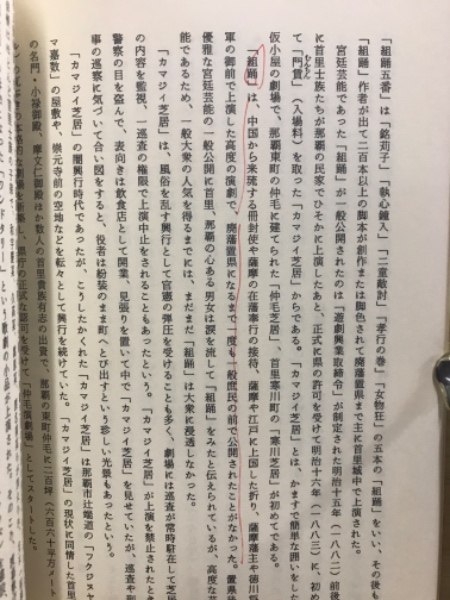 「組踊五番」は「銘苅子」「執心鐘入」「二童敵討」「孝行の巻」「女物狂」の五本の「組踊」をいい、その後も
「組踊」作者が出て二百本以上の脚本が創作または脚色されて廃藩置県まで主に首里城中で上演された。
宮廷芸能であった「組踊」が一般公開されたのは「遊劇興業取締令」が制定された明治十五年(一八八二)前後
に首里士族たちが那覇の民家でひそかに上演したあと、正式に県の許可を受けて明治十六年(一八八三)に、初め
て「門賃」(入場料)を取った「カマジイ芝居」からである。「カマジイ芝居」とは、かますで簡単な囲いをした
仮小屋の劇場で、那覇東町の仲毛に建てられた「仲毛芝居」、首里寒川町の「寒川芝居」が初めてである。
「組踊」は、中国から来琉する冊封使や薩摩の在藩奉行の接待、薩摩や江戸に上国した折り、薩摩藩主や徳川将
軍の御前で上演した高度の演劇で、廃藩置県になるまで一度も一般庶民の前で公開されたことがなかった。置県後
優雅な宮廷芸能の一般公開に首里、那覇の心ある男女は涙を流して「組踊」をみたと伝えられているが、高度な芸
能であるため、一般大衆の人気を得るまでには、まだまだ「組踊」は大衆に浸透しなかった。
「カマジイ芝居」は、風俗を乱す興行として官憲の弾圧を受けることも多く、劇場には巡査が常時駐在して芝居
の内容を監視、一巡査の権限で上演中止をされることもあったという。「カマジイ芝居」が上演を禁止されたとき
警察の目を盗んで、表向きは飲食店として開業、見張りを置いて中で「カマジイ芝居」を見せていたが、巡査や刑
事の巡察に気づいて合い図をすると、役者は扮装のまま町へとび出すという珍しい光景もあったという。
「カマジイ芝居」の闇興行時代であったが、こうしたかくれた「カマジイ芝居」は那覇市辻端道の「フクジスヤー
マ嘉数」の屋敷や、崇元寺前の空地などを転々として興行を続けていた。「カマジイ芝居」の現状に同情した首里
の名門・小禄御殿、摩文仁御殿ほか数人の首里貴族有志の出資で、那覇の東町仲毛に二百坪(六百六十平方メート
本格的な劇場を新築し、県庁の正式な認可を受けて「仲毛演劇場」としてスタートした。